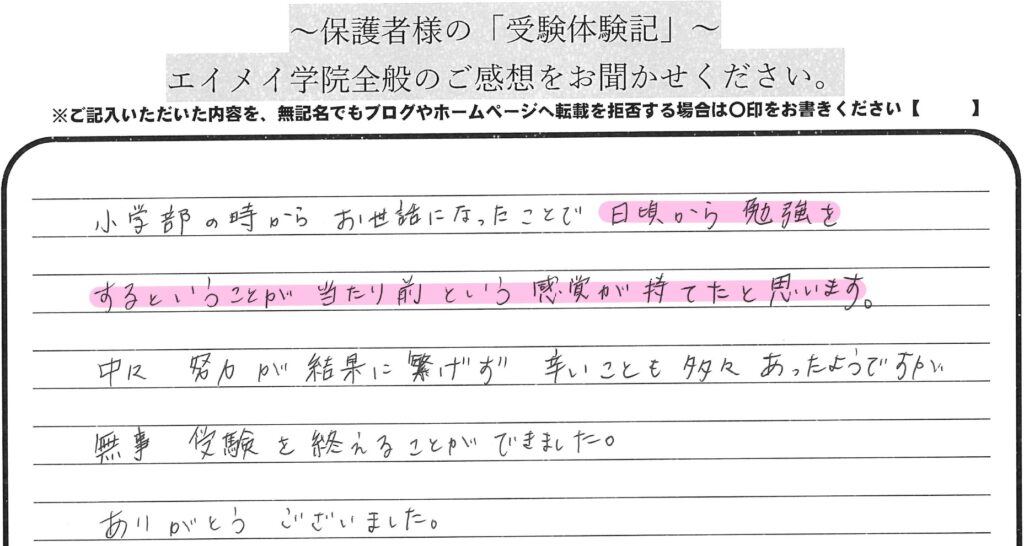 ～保護者様の「受験体験記」～
エイメイ学院全般のご感想をお聞かせください。
※ご記入いただいた内容を、無記名でもブログやホームページへ転載を拒否する場合は〇印をお書きください【　　　】
小学部の時から お世話になったことで 日頃から 勉強を
するということが 当たり前 という 感覚が 持てたと思います。
中に 努力が 結果に 繋げず 辛いことも 多々 あったようですが、
無事 受験を終えることができました。
ありがとう ございました。